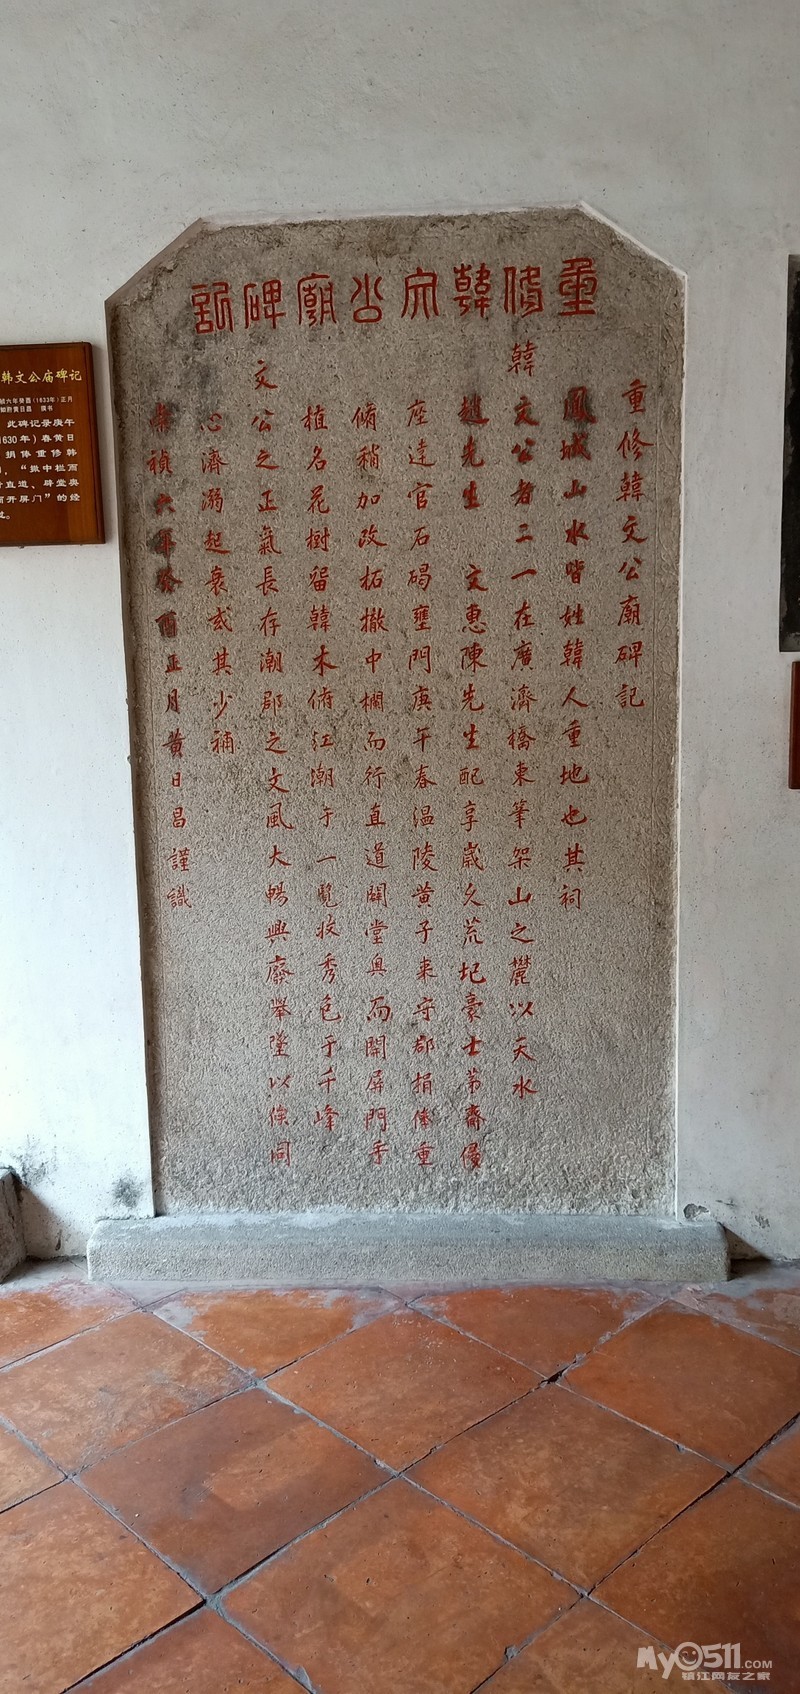 重修韓文公廟碑記
重修韓文公廟碑記
鳳城山水皆姓韓人重地也其祠
韓文公者三一在廣濟橋東筆架山之麓以天水
趙先生 文惠陳先生配享歲久荒圮豪士第齋侵
座達官石碣壅門庚午春溫陵黃子來守郡捐俸重
脩稍加改拓撤中欄而行直道闢堂奧而開屏門手
植名花樹留韓木俯江潮于一覽收秀色于千峰
文公之正氣長存潮郡之文風大暢興廢舉墜以俟同
心濟溺起衰或其少補
崇禎六年癸酉正月黃日昌謹識
韩文公庙碑记
祯六年癸酉(1633年)正月
知府黄日昌 撰书
此碑记录庚午
1630年)春黄日
捐俸重修韩
,“撤中栏而
行直道、辟堂奥
而开屏门”的经
过。
My0511.COM
镇江网友之家